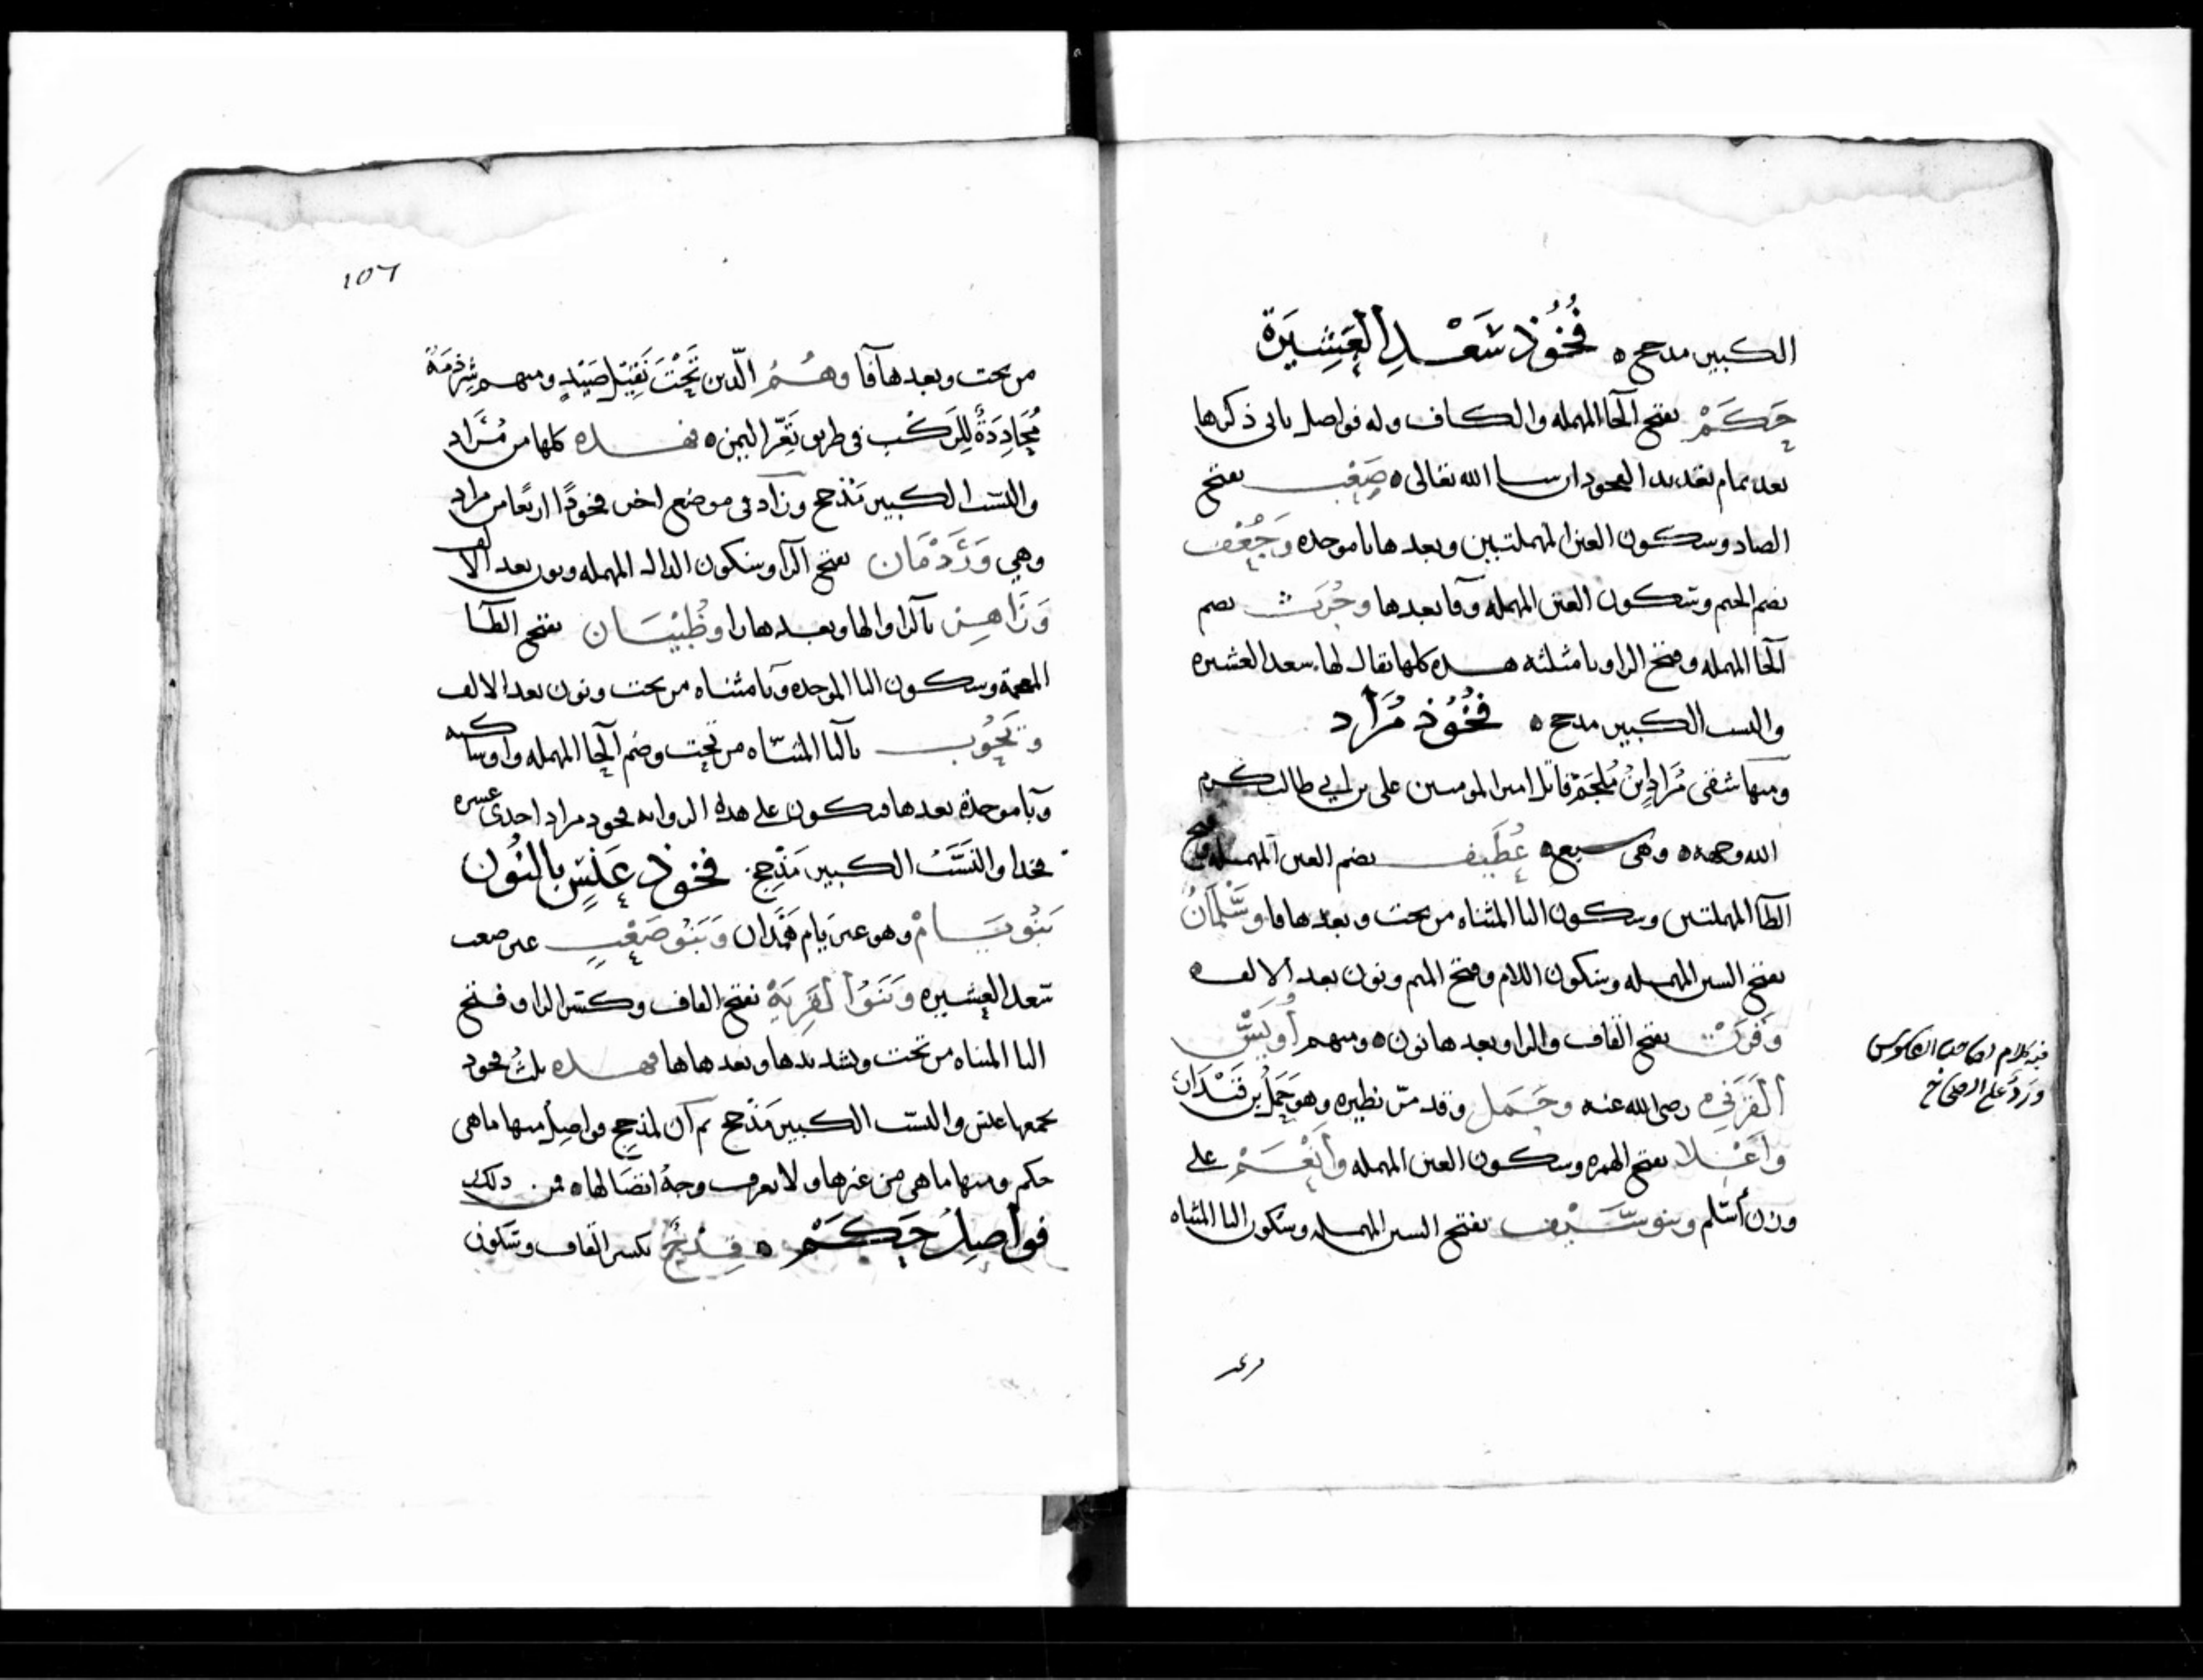 الكبير مدحج ه فُخُوذ سَعْدِ العَشِيرَة
حَكَمْ بفتح الحا المهمله والكاف وله فواصل ياتى ذكرها
بعد تمام تعديد الفخود ان سا الله تعالى ه صَعْب بفتح
الصاد وسكون العين المهملتين وبعدها با موحده وَجُعْف
بضم الجيم وسكون العين المهمله وفا بعدها وحُرَث بضم
الحا المهمله وفتح الرا وثا مثلثه هذه كلها يقال لها سعد العشيره
والنسب الكبير مدحج ه فُخُوذ مُرَاد
ومنها شقى مُرَاد ابنُ مُلجَم قاتل امير المومنين على بن ابي طالب كرم
الله وجهه ه وهى سبعه غُطَيف بضم العين المهمله وفتح
الطا المهملتين وسكون اليا المثناه من تحت وبعدها فا وسَلْمَانُ
بفتح السين المهمله وسكون اللام وفتح الميم ونون بعد الالف ه
وَقَرَنْ بفتح القاف والرا وبعدها نون ه ومنهم أُوَيسُ
القَرَنِى رضى الله عنه وجَمَل وقد مرّ نظيره وهو جَمَلُ بن
وَاَعْلا بفتح الهمزه وسكون العين المهمله وأَنْعَمْ على
وزن أسلم وبنو سَيْف بفتح السين المهمله وسكون اليا المثناه
فيه كلام لصاحب القاموس
ورَدٌّ على الصحاح
١٥٦
من تحت وبعدها فا وهُمُ الّذين تَحْتَ نَقِيْل صَيْدٍ ومنهم شِرذمَةٌ
للرَكْب فى طريق اليمن ه فهذه كلها من مُرَاد
والنسب الكبير مَذحج وزاد فى موضع اخر فخوذًا اربعًا من مراد
وهي وَرَدْمَان بفتح الرا وسكون الدال المهمله ونون بعد الالف
وَزَاهِر بالزا والها وبعدها را وظَبْيَان بفتح الظا
المعجمة وسكون البا الموحده ويا مثناه من تحت ونون بعد الالف
وَيَحُوب باليا المثنّاه من تحت وضم الحا المهمله واو ساكنه
وبا موحدة بعدها فيكون على هذه الروايه فخود مراد احدى عشره
فخدا والنَسَبُ الكبير مَذْحج. فخوذ عَنْسٍ بالنُون
بَنُو يَامْ وهو غير يَام هَمْدان وَبَنُو صَعْبٍ غير صعب
سعد العشيره وَبَنُوا القَرِيَة بفتح القاف وكسر الرا وفتح
اليا المثناه من تحت وتشديدها وبعدها ها فهذه ثلثُ فخود
يجمعها عنس والنسب الكبير مَذحج ثم ان لمذحج فواصل منها ما هى
حكم ومنها ما هى من غيرها ولا يعرف وجهُ اتصالها ه فمن ذلك
فواصِلُ حَكَمْ ه بكسر القاف وسكون